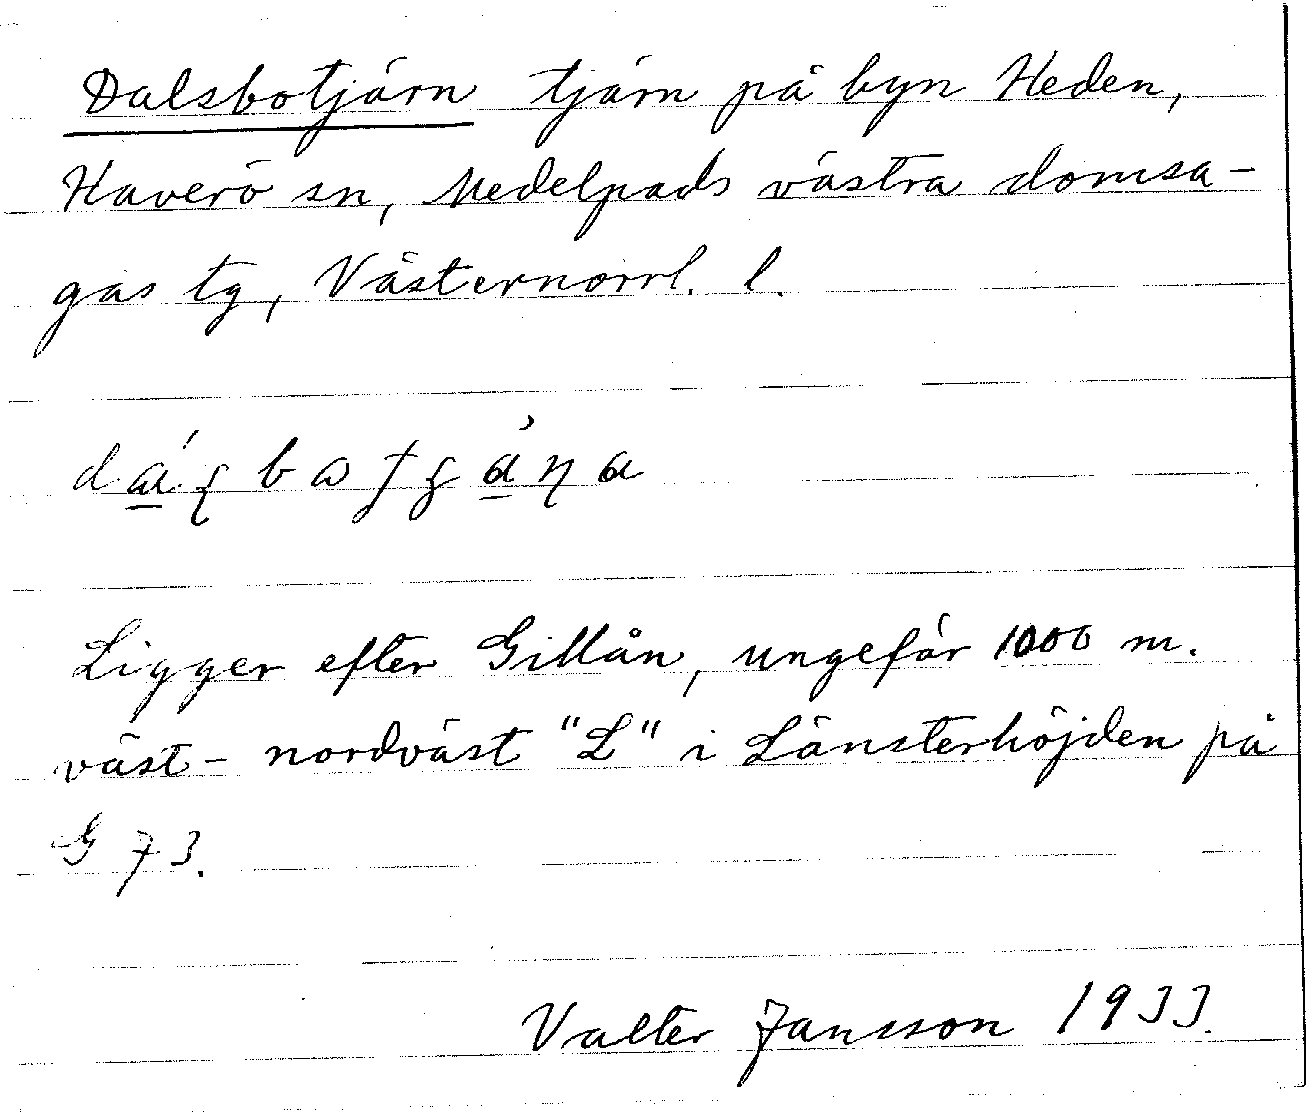 Dalsbotjärn tjärn på byn Heden,
Haverö sn, Medelpads västra domsa-
gas tg, Västernorrl. l.
Ligger efter Gillån, ungefär 1000 m.
väst- nordväst "L" i Länsterhöjden på
G 73.
Valter Jansson 1933.